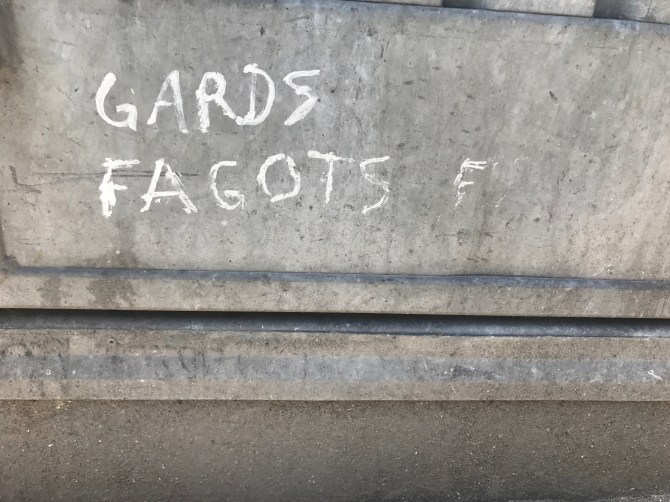 GARDS
FAGOTS F